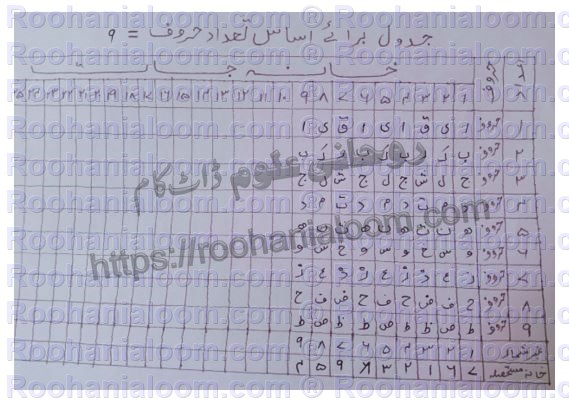 جدول برائے اساس تعداد حروف = ۹
خانہ جات
حروف ۱ ۲ ۳ ۴ ۵ ۶ ۷ ۸ ۹ ۱۰ ۱۱ ۱۲ ۱۳ ۱۴ ۱۵ ۱۶ ۱۷ ۱۸ ۱۹ ۲۰ ۲۱ ۲۲ ۲۳ ۲۴ ۲۵
۱ حروف ا ی ق ا ی ا ق ی ا
۲ حروف ب ک
۳ حروف ج ل ش ج ل ج ش ل ج
۴ حروف د م ت
۵ حروف
۶ حروف و س خ و س و خ س و
۷ حروف ز ع ذ ز ع ز ذ ع ز
۸ حروف ح ف ض ح ف ح ض ف ح
۹ حروف ط ص ظ ط ص ط ظ ص ط
نمبر شمار ۱ ۲ ۳ ۴ ۵ ۶ ۷ ۸ ۹
خانہ مستحصلہ ۷ ۶ ۱ ۲ ۳ ۸ ۹ ۵ ۴
روحانی علوم ڈاٹ کام
https://roohanialoom.com
Roohanialoom.com